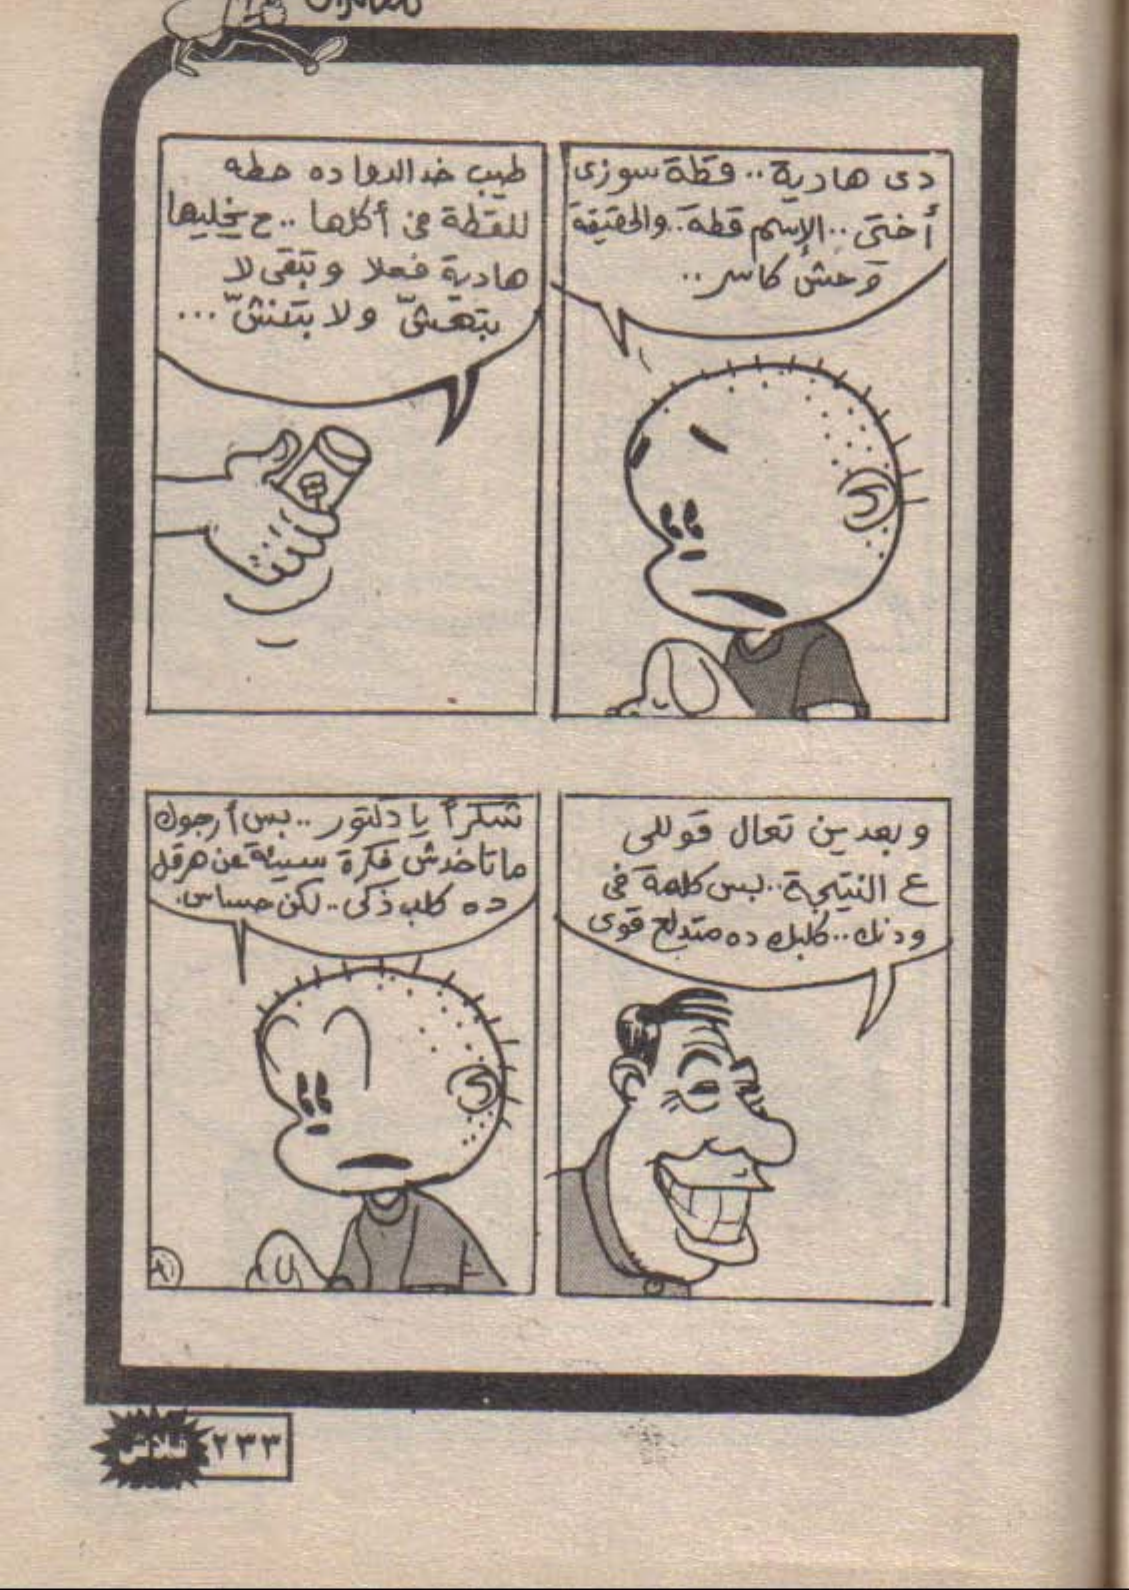 دى هادية.. قطة سوزى
أختى.. الإسم قطة.. والحقيقة
وحش كاسر..
طيب خد الدوا ده حطه
للقطة فى أكلها.. ح يخليها
هادية فعلا وتبقى لا
بتهشّ ولا بتنشّ...
وبعدين تعال قوللى
ع النتيجة.. بس كلمة فى
ودنك.. كلبك ده متدلع قوى
شكراً يا دكتور.. بس أرجوك
ماتاخدش فكرة سيئة عن هرقل
ده كلب ذكى.. لكن حساس.
فلاش ٢٣٣